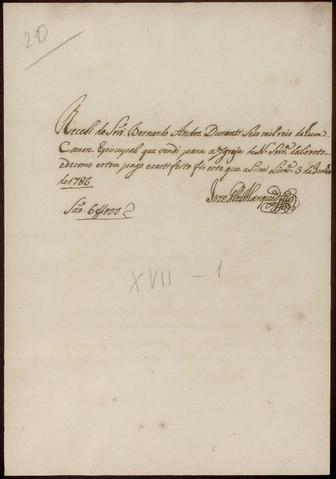 20
Recebi do Snr. Bernardo Andre Durante Seis mil reis de hum
Canon Episcopal que vendi para a Igreja de N. Snra. do Loreto
e de como estou pago e satisfeito fis este que asinei Lxa. 3 de
de 1786
São 6$000
Joze Marques
XVII - 1